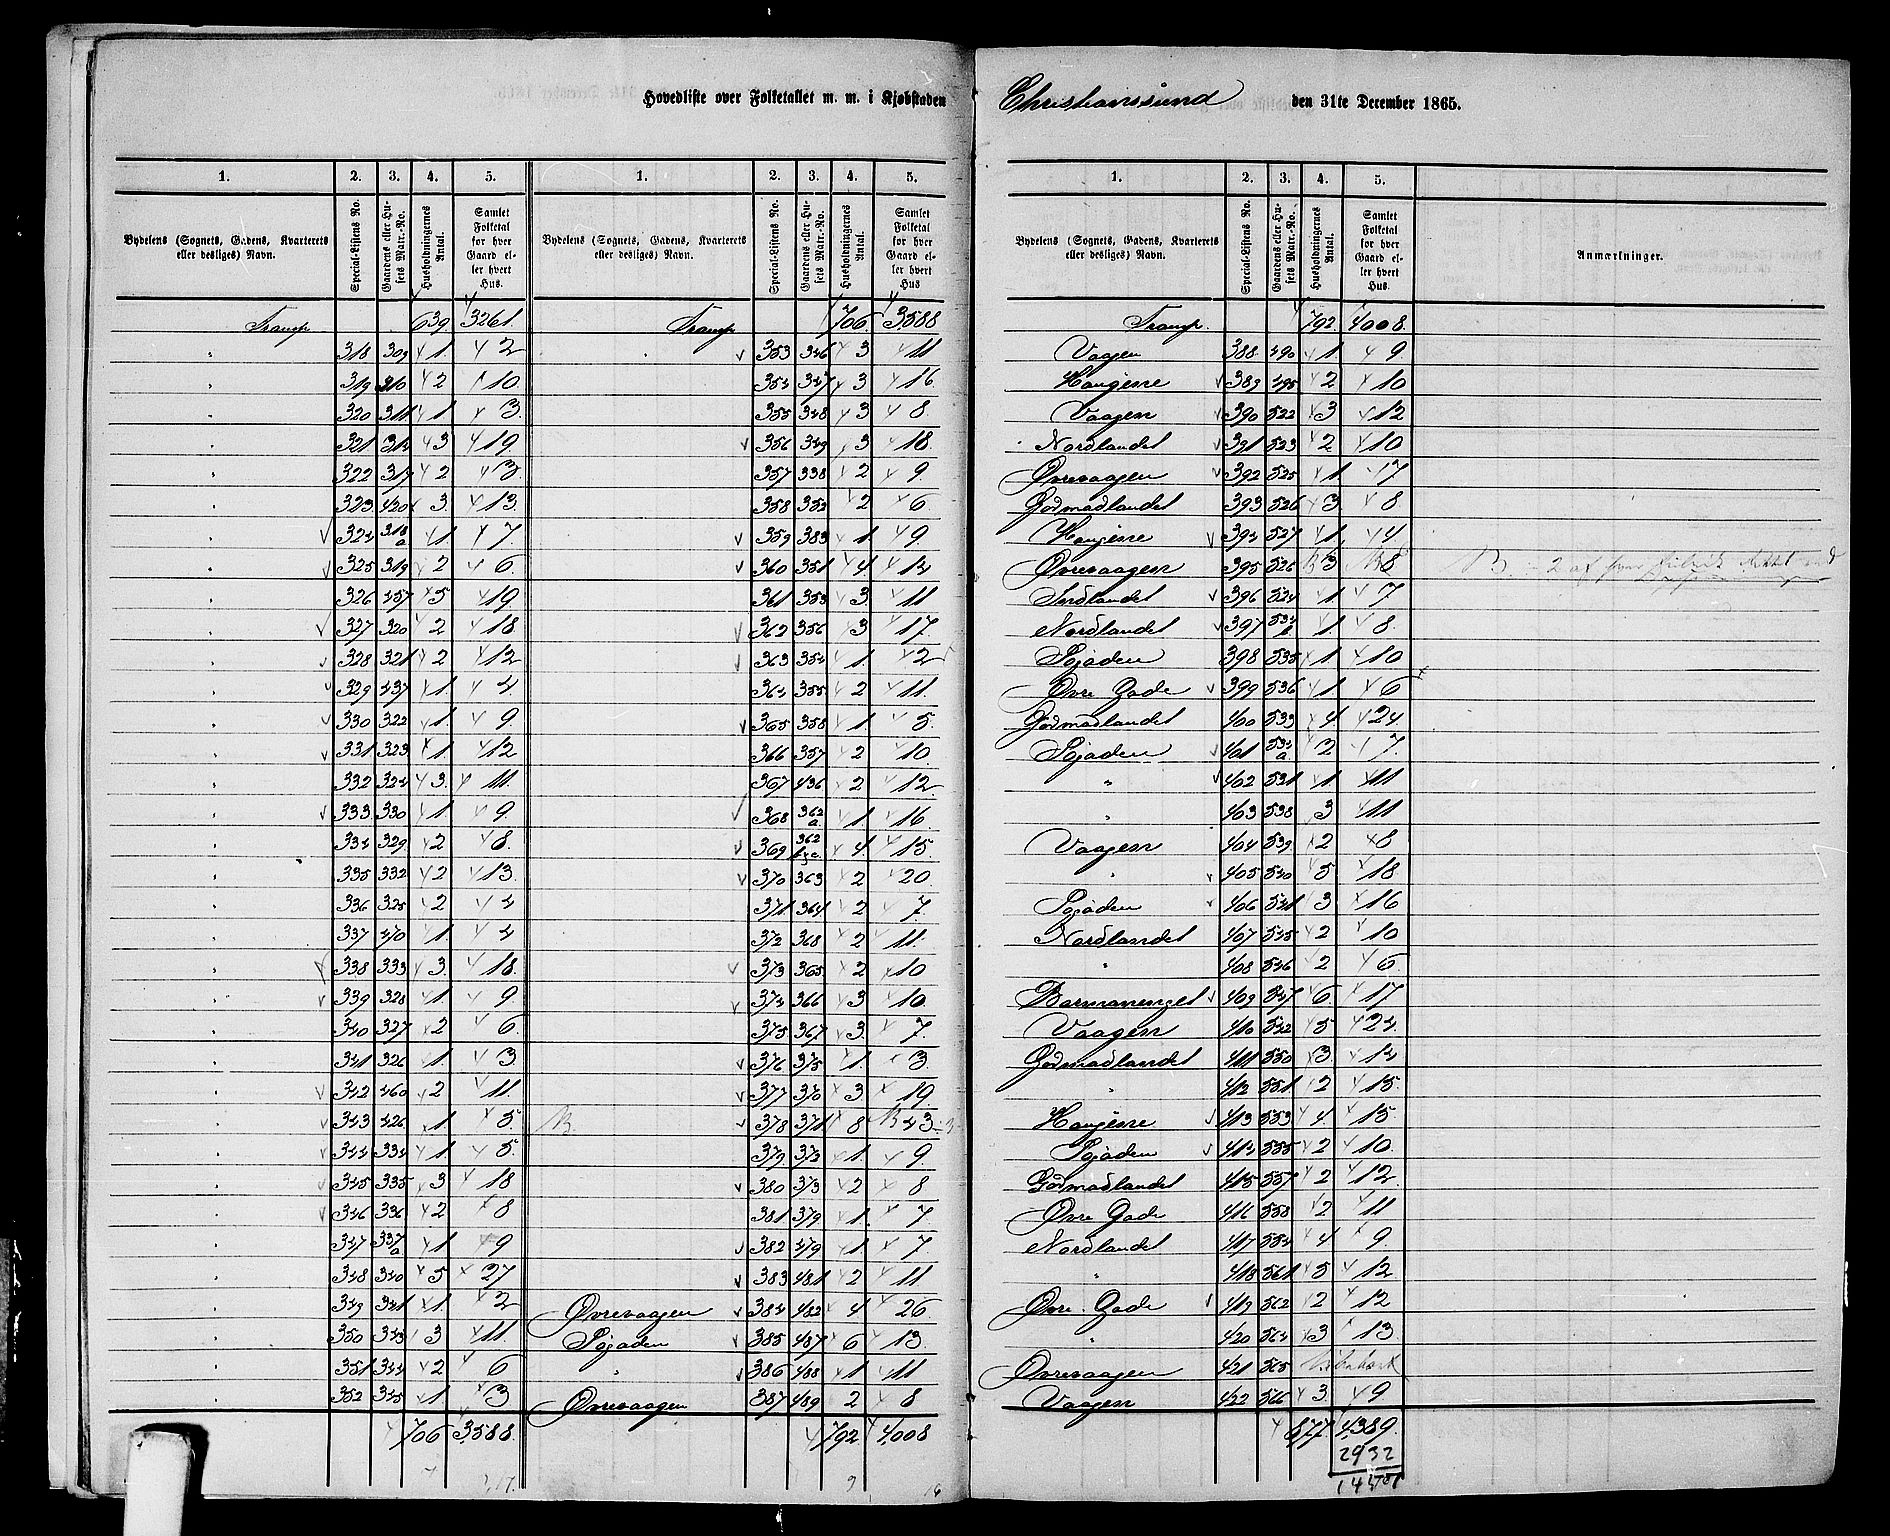 Hovedliste over Folketallet m. m. i Kjøbstaden Christianssund den 31te December 1865.
1. 2. 3. 4. 5. 1. 2. 3. 4. 5.
Bydelens (Sognets, Gadens, Kvarterets eller desliges) Navn. Special-Listens No. Gaardens eller Husets Matr.-No. Husholdningernes Antal. Samlet Folketal for hver Gaard eller hvert Hus Bydelens (Sognets, Gadens, Kvarterets eller desliges) Navn. Special-Listens No. Gaardens eller Husets Matr.-No. Husholdningernes Antal. Samlet Folketal for hver Gaard eller hvert Hus
Transp. 639 3261 Transp. 706 3588
" 318 309 1 2 " 353 346 3 11
" 319 310 2 10 354 347 3 16
" 320 311 1 3 355 348 3 8
" 321 312 3 19 356 349 3 18
" 322 317 2 3 357 338 2 9
" 323 420 3 13 358 352 2 6
" 324 318a 1 7 359 383 1 9
" 325 319 2 6 360 351 4 14
" 326 457 5 19 361 353 3 11
" 327 320 2 18 362 356 3 17
" 328 321 2 12 363 354 1 2
" 329 437 1 4 364 355 2 11
" 330 322 1 9 365 358 1 5
" 331 323 1 12 366 357 2 10
" 332 324 3 11 367 436 2 12
" 333 330 1 9 368 362a 1 16
" 334 329 2 8 369 362 4 15
" 335 332 2 13 370 363 2 20
" 336 325 2 4 371 364 2 7
" 337 470 1 4 372 368 2 11
" 338 333 3 18 373 365 2 10
" 339 328 1 9 374 366 3 10
" 340 327 2 6 375 367 3 7
" 341 326 1 3 376 375 1 3
" 342 460 2 11 377 370 3 19
" 343 426 1 5 378 371 8 43
" 344 334 1 5 379 372 1 9
" 345 335 3 18 380 373 2 8
" 346 336 2 8 381 379 1 7
" 347 337a 1 9 382 479 1 7
" 348 340 5 27 383 481 2 11
" 349 341 1 2 Øvrevaagen 384 482 4 26
" 350 343 3 11 Søgaden 385 487 6 13
351 344 2 6 " 386 488 1 11
352 345 1 3 Øvrevaagen 387 489 2 8
706 3588 792 4,008
1. 2. 3. 4. 5.
Bydelens (Sognets, Gadens, Kvarterets eller desliges) Navn. Special-Listens No. Gaardens eller Husets Matr.-No. Husholdningernes Antal. Samlet Folketal for hver Gaard eller hvert Hus. Anmærkninger.
Transp. 792 4008
Vaagen 388 490 1 9
Haugene 389 495 2 10
Vaagen 390 522 3 12
Nordlandet 391 523 2 10
Øvrevaagen 392 525 1 17
Gødmadlandet 393 526 3 8
Haugene 394 527 1 4
Øvrevaagen 395 526 3 8 2 af
Nordlandet 396 524 1 7
Nordlandet 397 532b 1 8
Søgaden 398 535 1 10
Øvre Gade 399 536 1 6
Gødmadlandet 400 533 4 24
Søgaden 401 532a 2 7
" 402 531 1 11
" 403 538 3 11
Vaagen 404 539 2 8
" 405 540 5 18
Søgaden 406 541 3 16
Nordlandet 407 545 2 10
" 408 546 2 6
Barmanenget 409 547 6 17
Vaagen 410 542 5 24
Gødmadlandet 411 550 3 14
" 412 551 2 15
Haugene 413 553 4 15
Søgaden 414 555 2 10
Gødmadlandet 415 557 2 12
Øvre Gade 416 558 2 11
Nordlandet 417 554 4 9
" 418 561 5 12
Øvre Gade 419 562 2 12
" 420 564 3 13
Øvrevaagen 421 565
Vaagen 422 566 3 9
877 4,389
2932